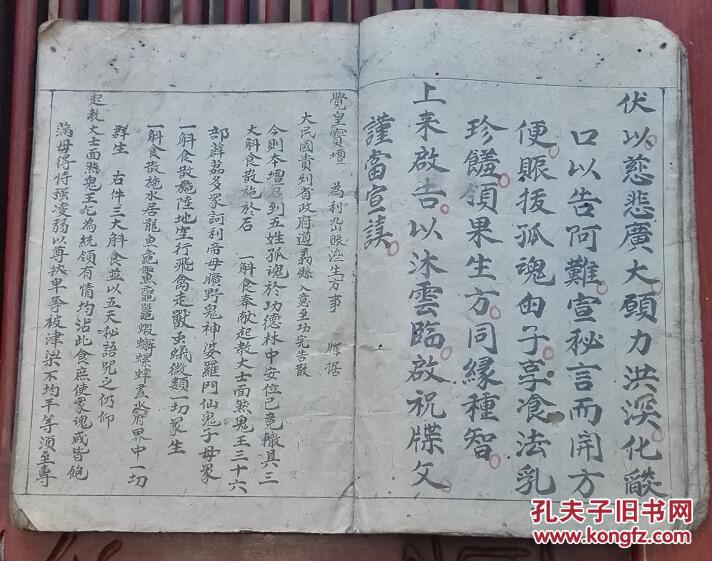 伏以慈悲廣大願力洪深化燄
口以告阿難宣秘言而開方
便賑拔孤魂由子享飡法乳
珍饈領果生方同緣種智
上来啟告以沐雲臨啟祝牒文
謹當宣讀
覺皇寶壇 為利岀賑濟生方事 牒据
大民國貴州省政府遵義縣入意至功完告散
今則本壇召到五姓孤魂於功德林中安位已竟辙具三
大斛食散施於后 一斛食奉献起教大士面燃鬼王三十六
部薜荔多眾訶利帝母曠野鬼神婆羅門仙鬼子母眾
一斛食散施陸地空行飛禽走獸虫蟻微類一切眾生
一斛食散施水居龍魚 蝦蠏螺蚌盡 府界中一切
群生 右件三大斛食並以五天秘語咒之仍仰
起教大士面燃鬼王乞為統領有情均沾此食庶使眾魂咸皆飽
滿毋得恃强凌弱以尊挾卑等被津梁不均平等須至專
孔夫子旧书网
www.kongfz.com